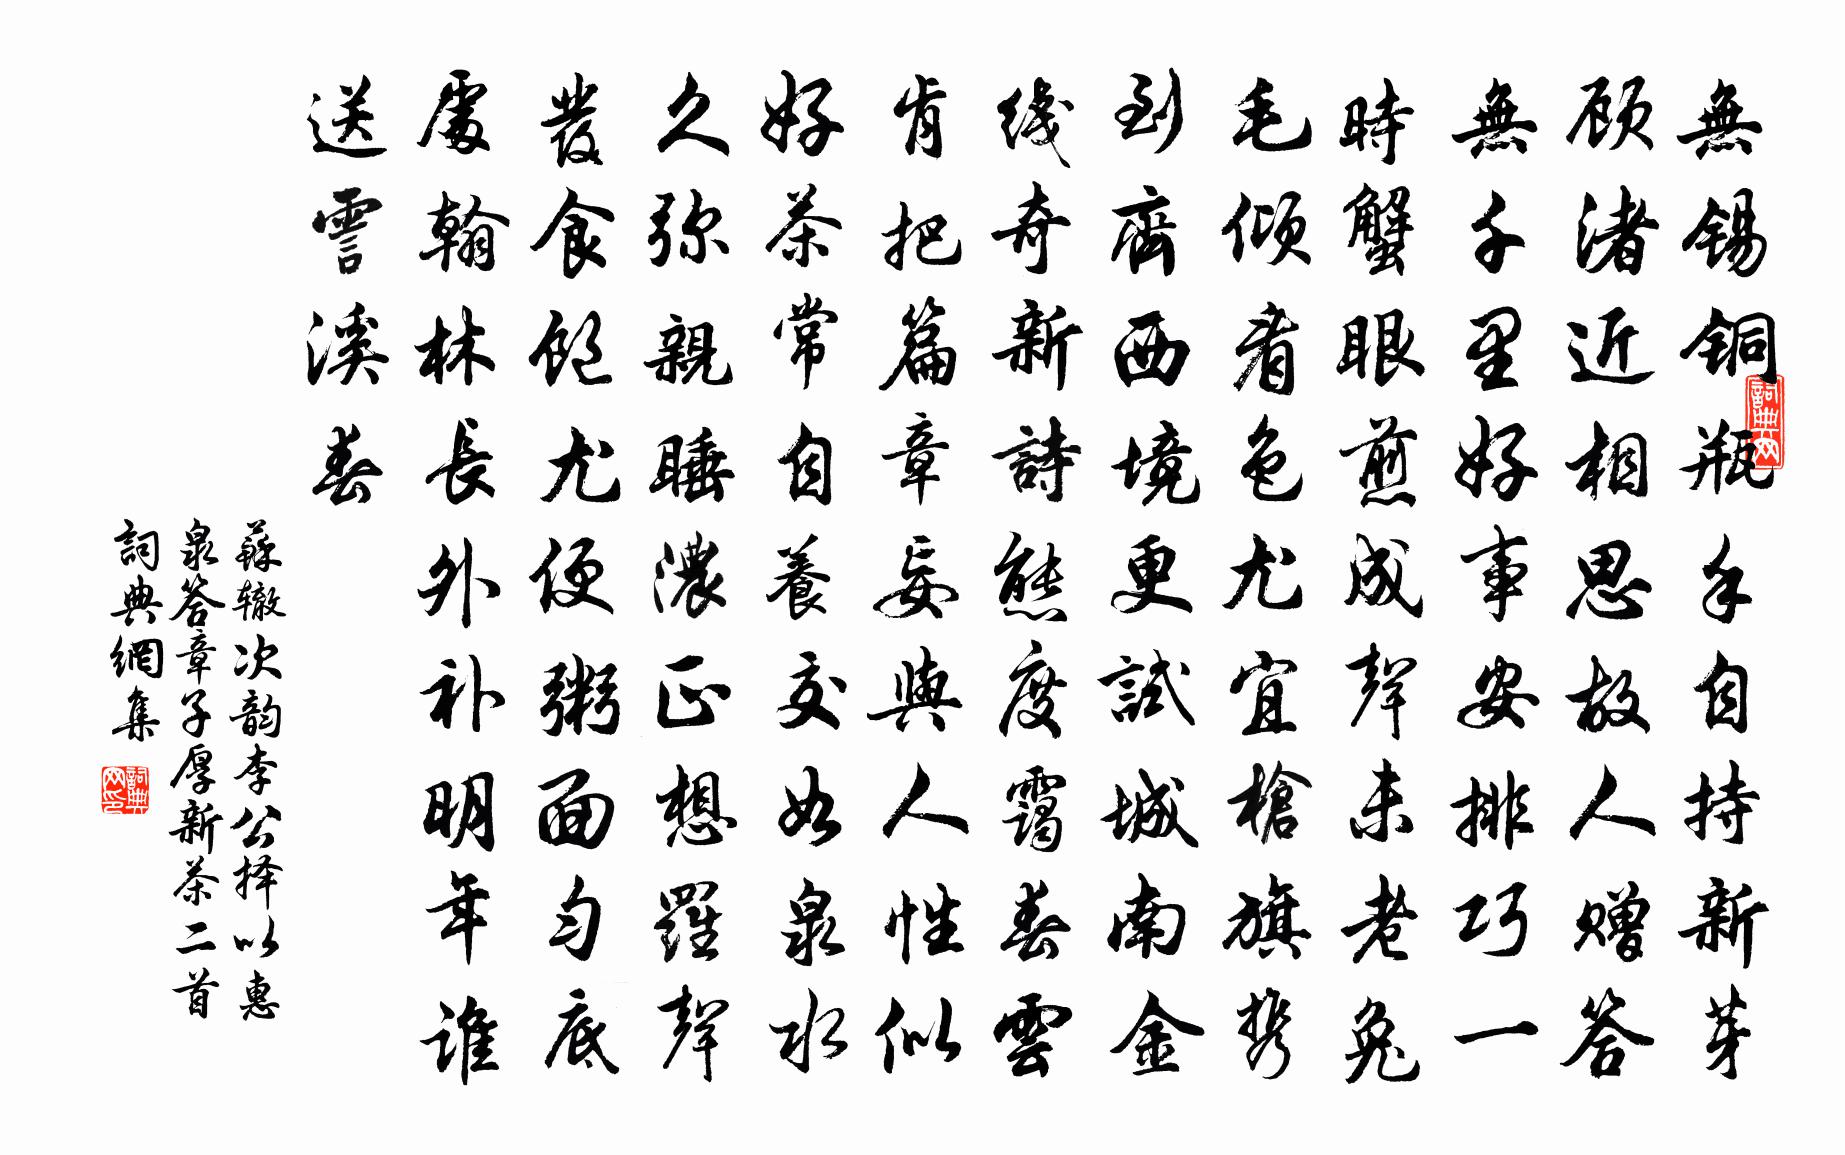 無锡銅瓶手自持新芽
顾渚近相思故人赠答
無千里好事安排巧一
時蟹眼煎成聲未老兔
毛倾看色尤宜槍旗携
到齊西境更試城南金
线奇新詩態度靄春雲
肯把篇章妄與人性似
好茶常自養交如泉水
久弥親睡濃正想羅聲
發食飽尤便粥面匀底
處翰林長外补明年谁
送霅溪春
蘇辙次韵李公择以惠
泉答章子厚新茶二首
詞典網集
詞典网
詞典网印